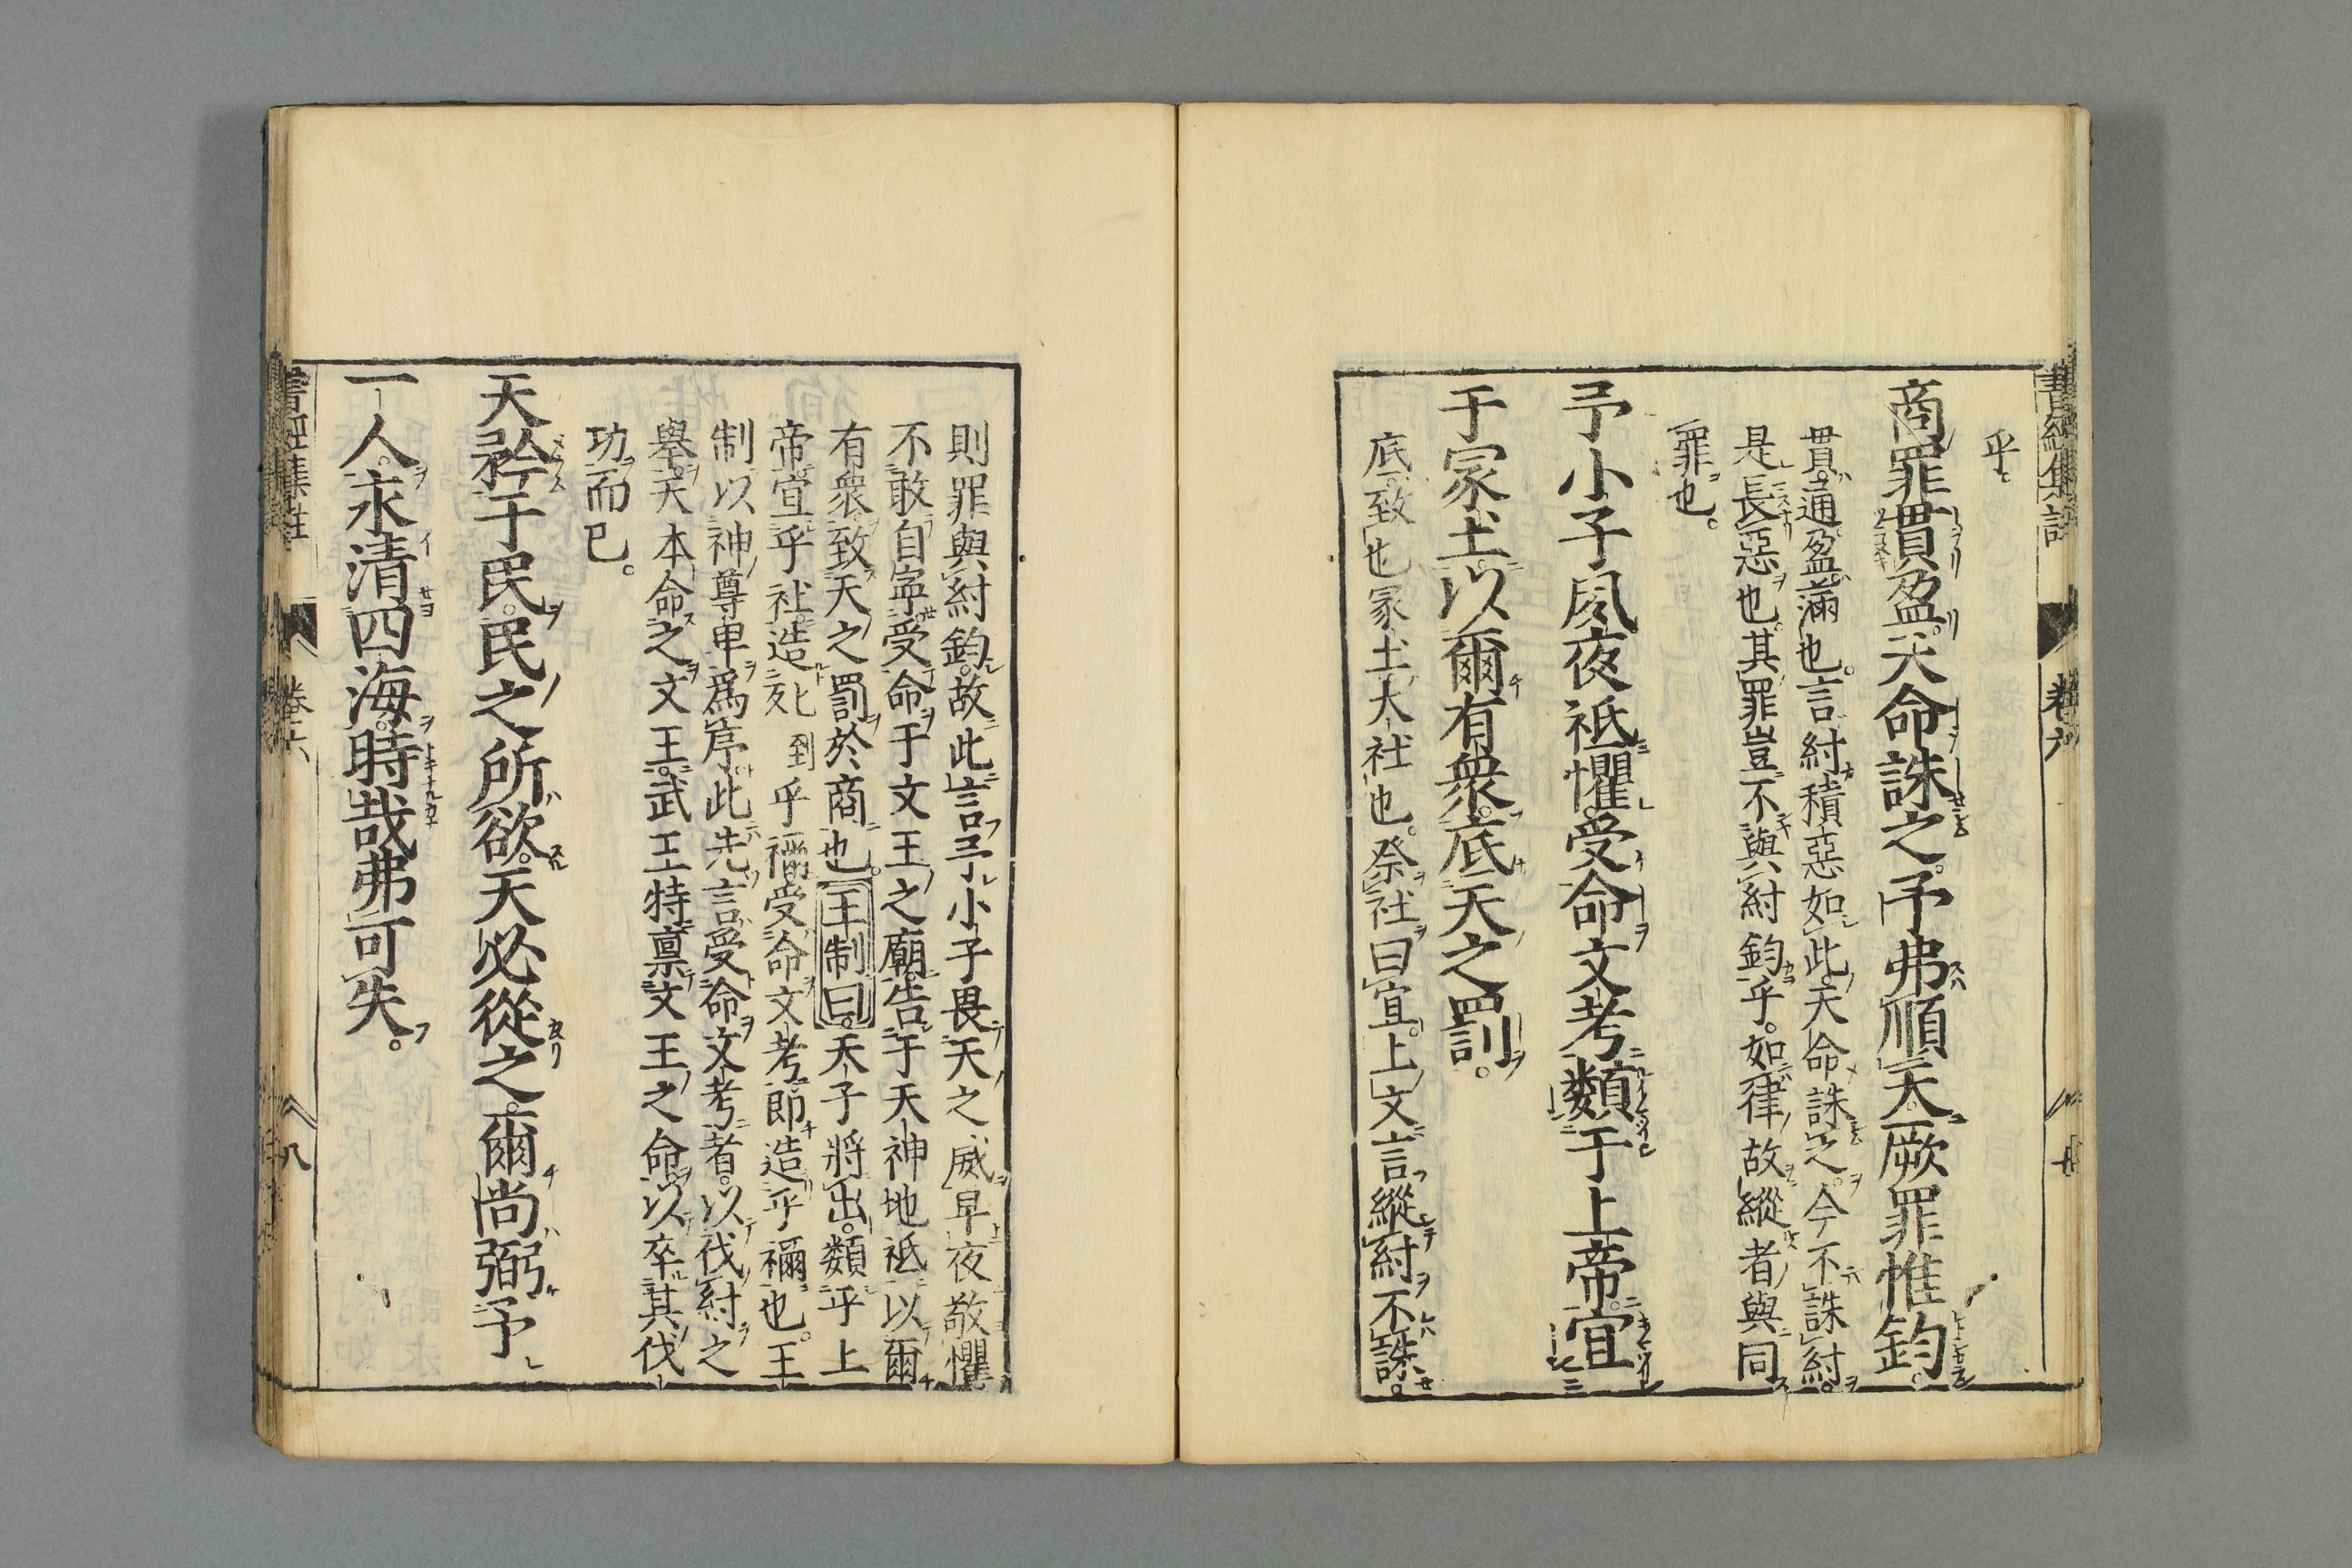 書經集註
卷六
乎。
商罪貫盈。天命誅之。予弗順天。厥罪惟鈞。
貫。通。盈。滿也。言紂積惡如此。天命誅之。今不誅紂。
是長惡也。其罪豈不與紂鈞乎。如律故縱者與同
罪也。
予小子夙夜祗懼。受命文考。類于上帝。宜
于冢土。以爾有衆。底天之罰。
底。致也。冢土。大社也。祭社曰宜。上文言縱紂不誅。
則罪與紂鈞。故此言予小子畏天之威。早夜敬懼。
不敢自寧。受命于文王之廟。告于天神地祗。以爾
有衆。致天之罰於商也。王制曰。天子將出。類乎上
帝。宜乎社。造七到乎禰。受命文考。即造乎禰也。王
制以神尊卑爲序。此先言受命文考者。以伐紂之
擧。天本命之文王。武王特禀文王之命。以卒其伐
功而已。
天矜于民。民之所欲。天必從之。爾尚弼予
一人。永清四海。時哉弗可失。
書經集註
卷六
八